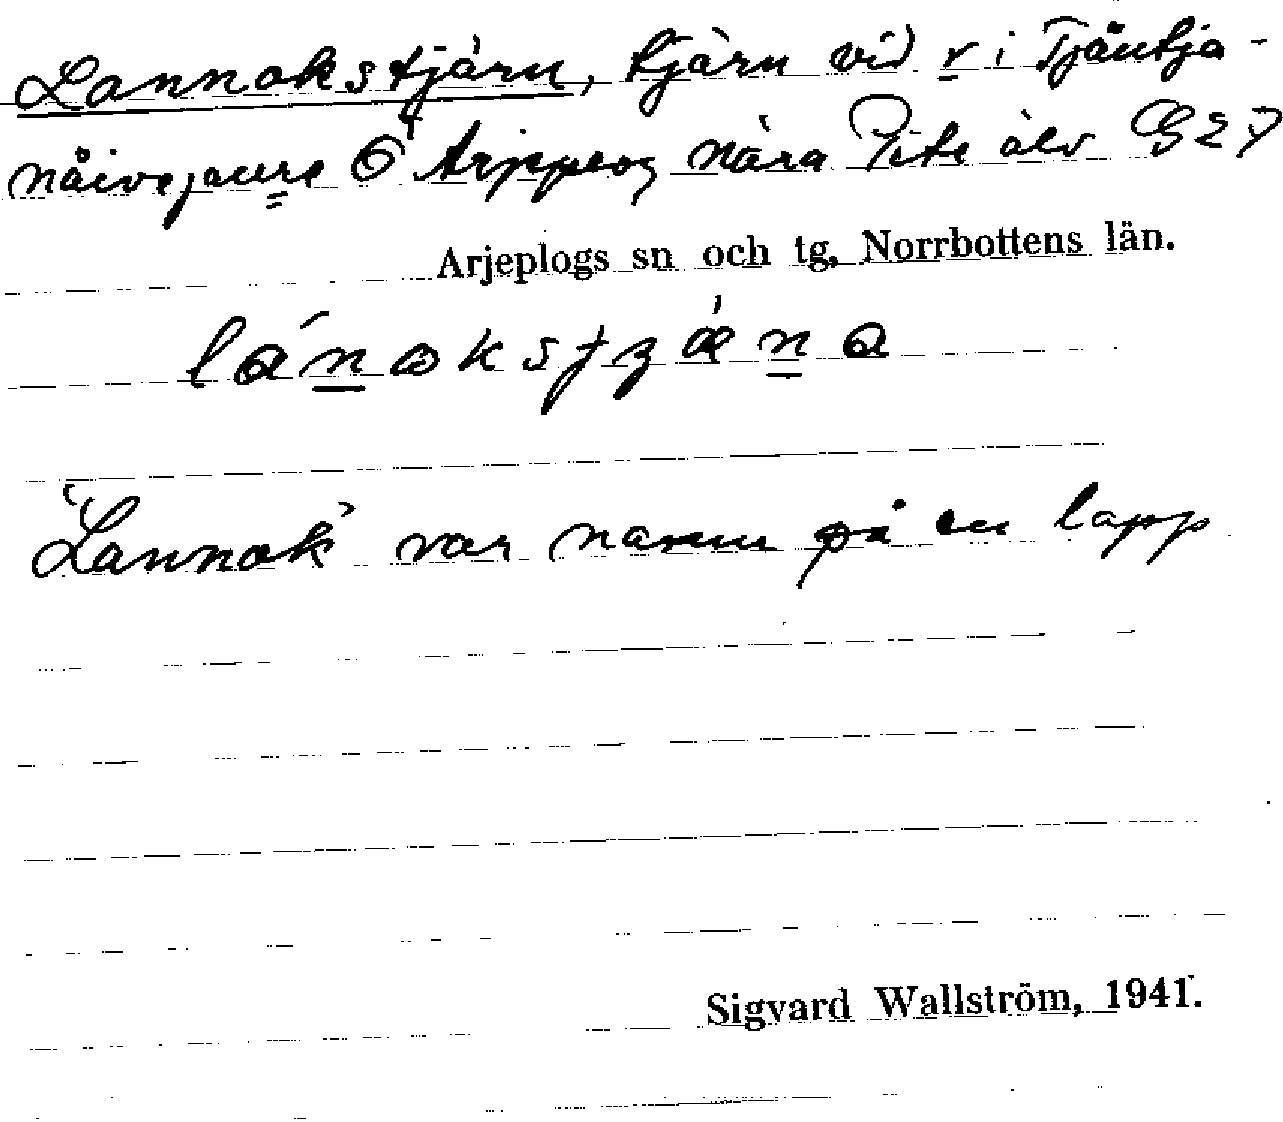 Lannokstjärn, tjärn vid r i Tjäutja-
nåivejaure Ö Arjeplog nära Pite älv G 27
Arjeplogs sn och tg, Norrbottens län.
"Lannok" var namn på en lapp
Sigvard Wallström, 1941.